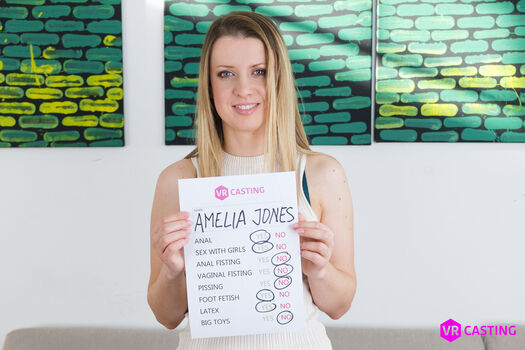 VR CASTING
AMELIA JONES
ANAL YES NO
SEX WITH GIRLS YES NO
ANAL FISTING YES NO
VAGINAL FISTING YES NO
PISSING YES NO
FOOT FETISH YES NO
LATEX YES NO
BIG TOYS YES NO
VR CASTING